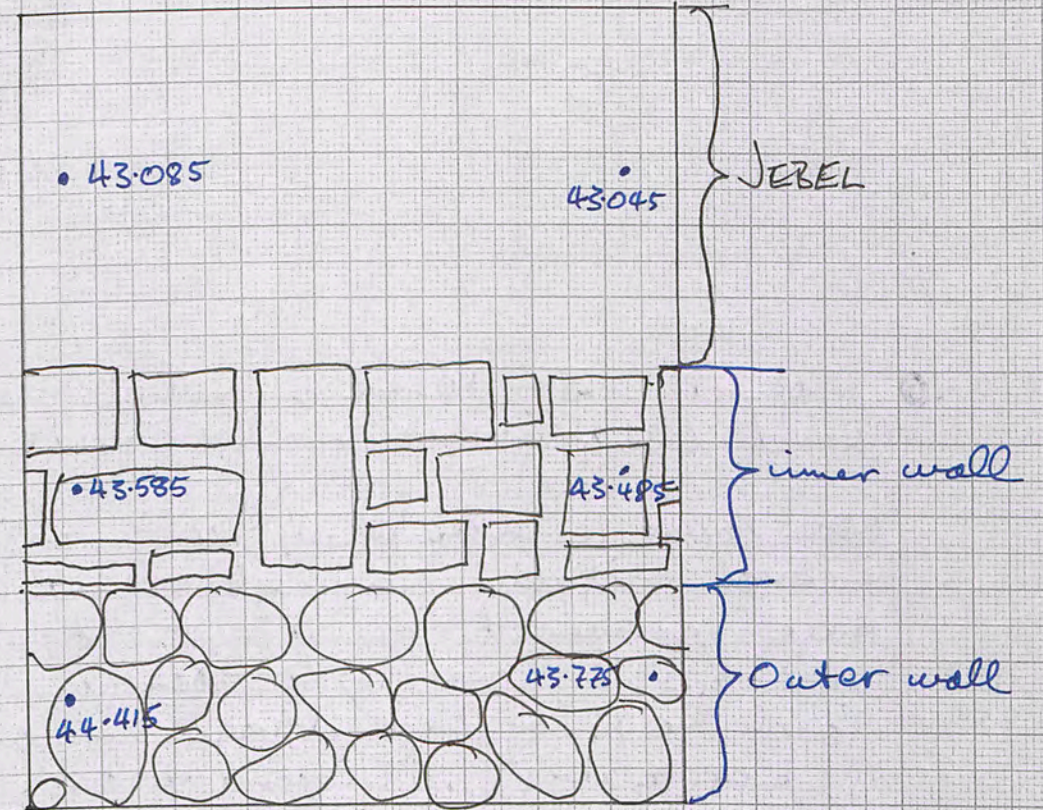 43.085
43.045
JEBEL
43.585
43.485
inner wall
43.775
Outer wall
44.415